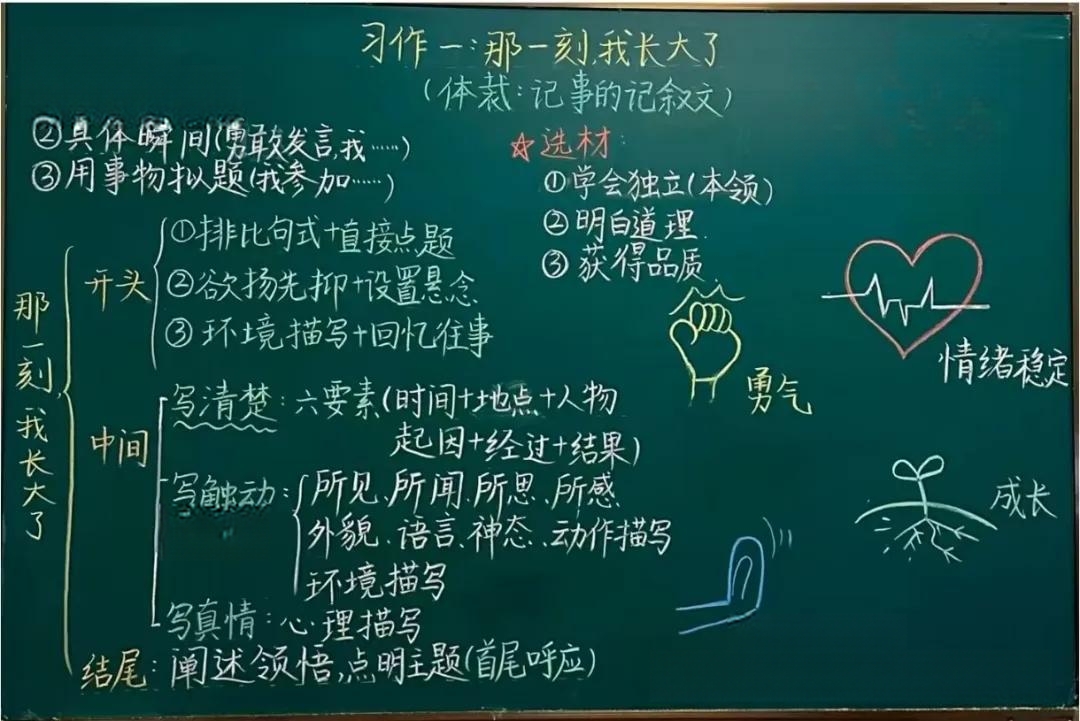 习作一:那一刻,我长大了
(体裁:记事的记叙文)
②具体瞬间(勇敢发言,我……)
③用事物拟题(我参加……)
☆选材:
①学会独立(本领)
②明白道理.
③获得品质.
那一刻,我长大了
开头
①排比句式+直接点题
②欲扬先抑+设置悬念
③环境描写+回忆往事
中间
写清楚:六要素(时间+地点+人物
起因+经过+结果)
写触动:所见、所闻、所思、所感、
外貌、语言、神态、动作描写
环境描写
写真情:心理描写
结尾:阐述领悟,点明主题(首尾呼应)
勇气
情绪稳定
成长